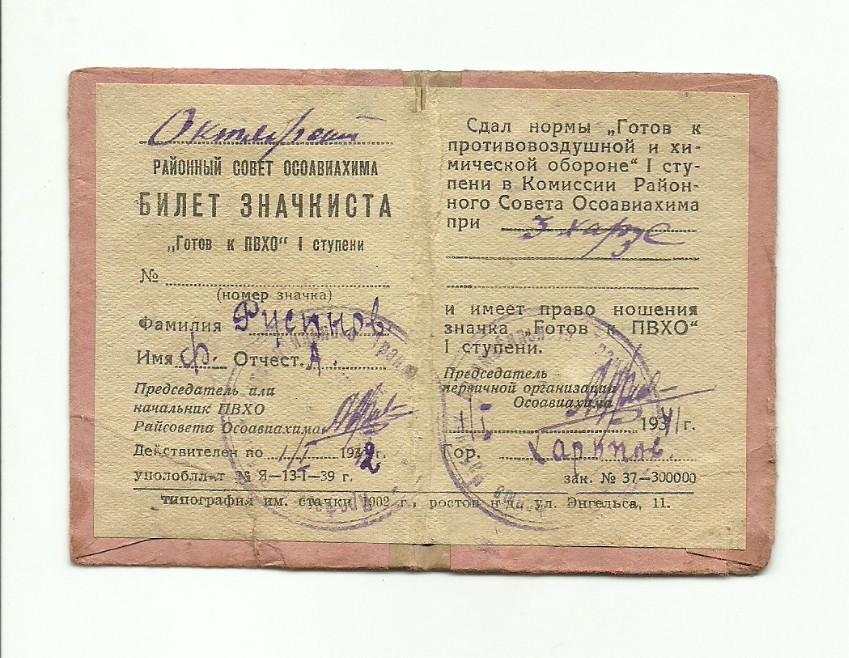 Октябрьский
РАЙОННЫЙ СОВЕТ ОСОАВИАХИМА
БИЛЕТ ЗНАЧКИСТА
„Готов к ПВХО“ I ступени
№
(номер значка)
Фамилия Русинов
Имя Ф. Отчест. А.
Председатель или
начальник ПВХО
Райсовета Осоавиахима
Действителен по 1/I 1942 г.
уполобллит № Я—13-I—39 г.
Сдал нормы „Готов к
противовоздушной и хи-
мической обороне“ I сту-
пени в Комиссии Район-
ного Совета Осоавиахима
при
и имеет право ношения
значка „Готов к ПВХО“
I ступени.
Председатель
первичной организации
Осоавиахима
1/I 1941 г.
Гор.
зак. № 37—300000
типография им. стачки 1902 г., ростов н-д. ул. Энгельса, 11.